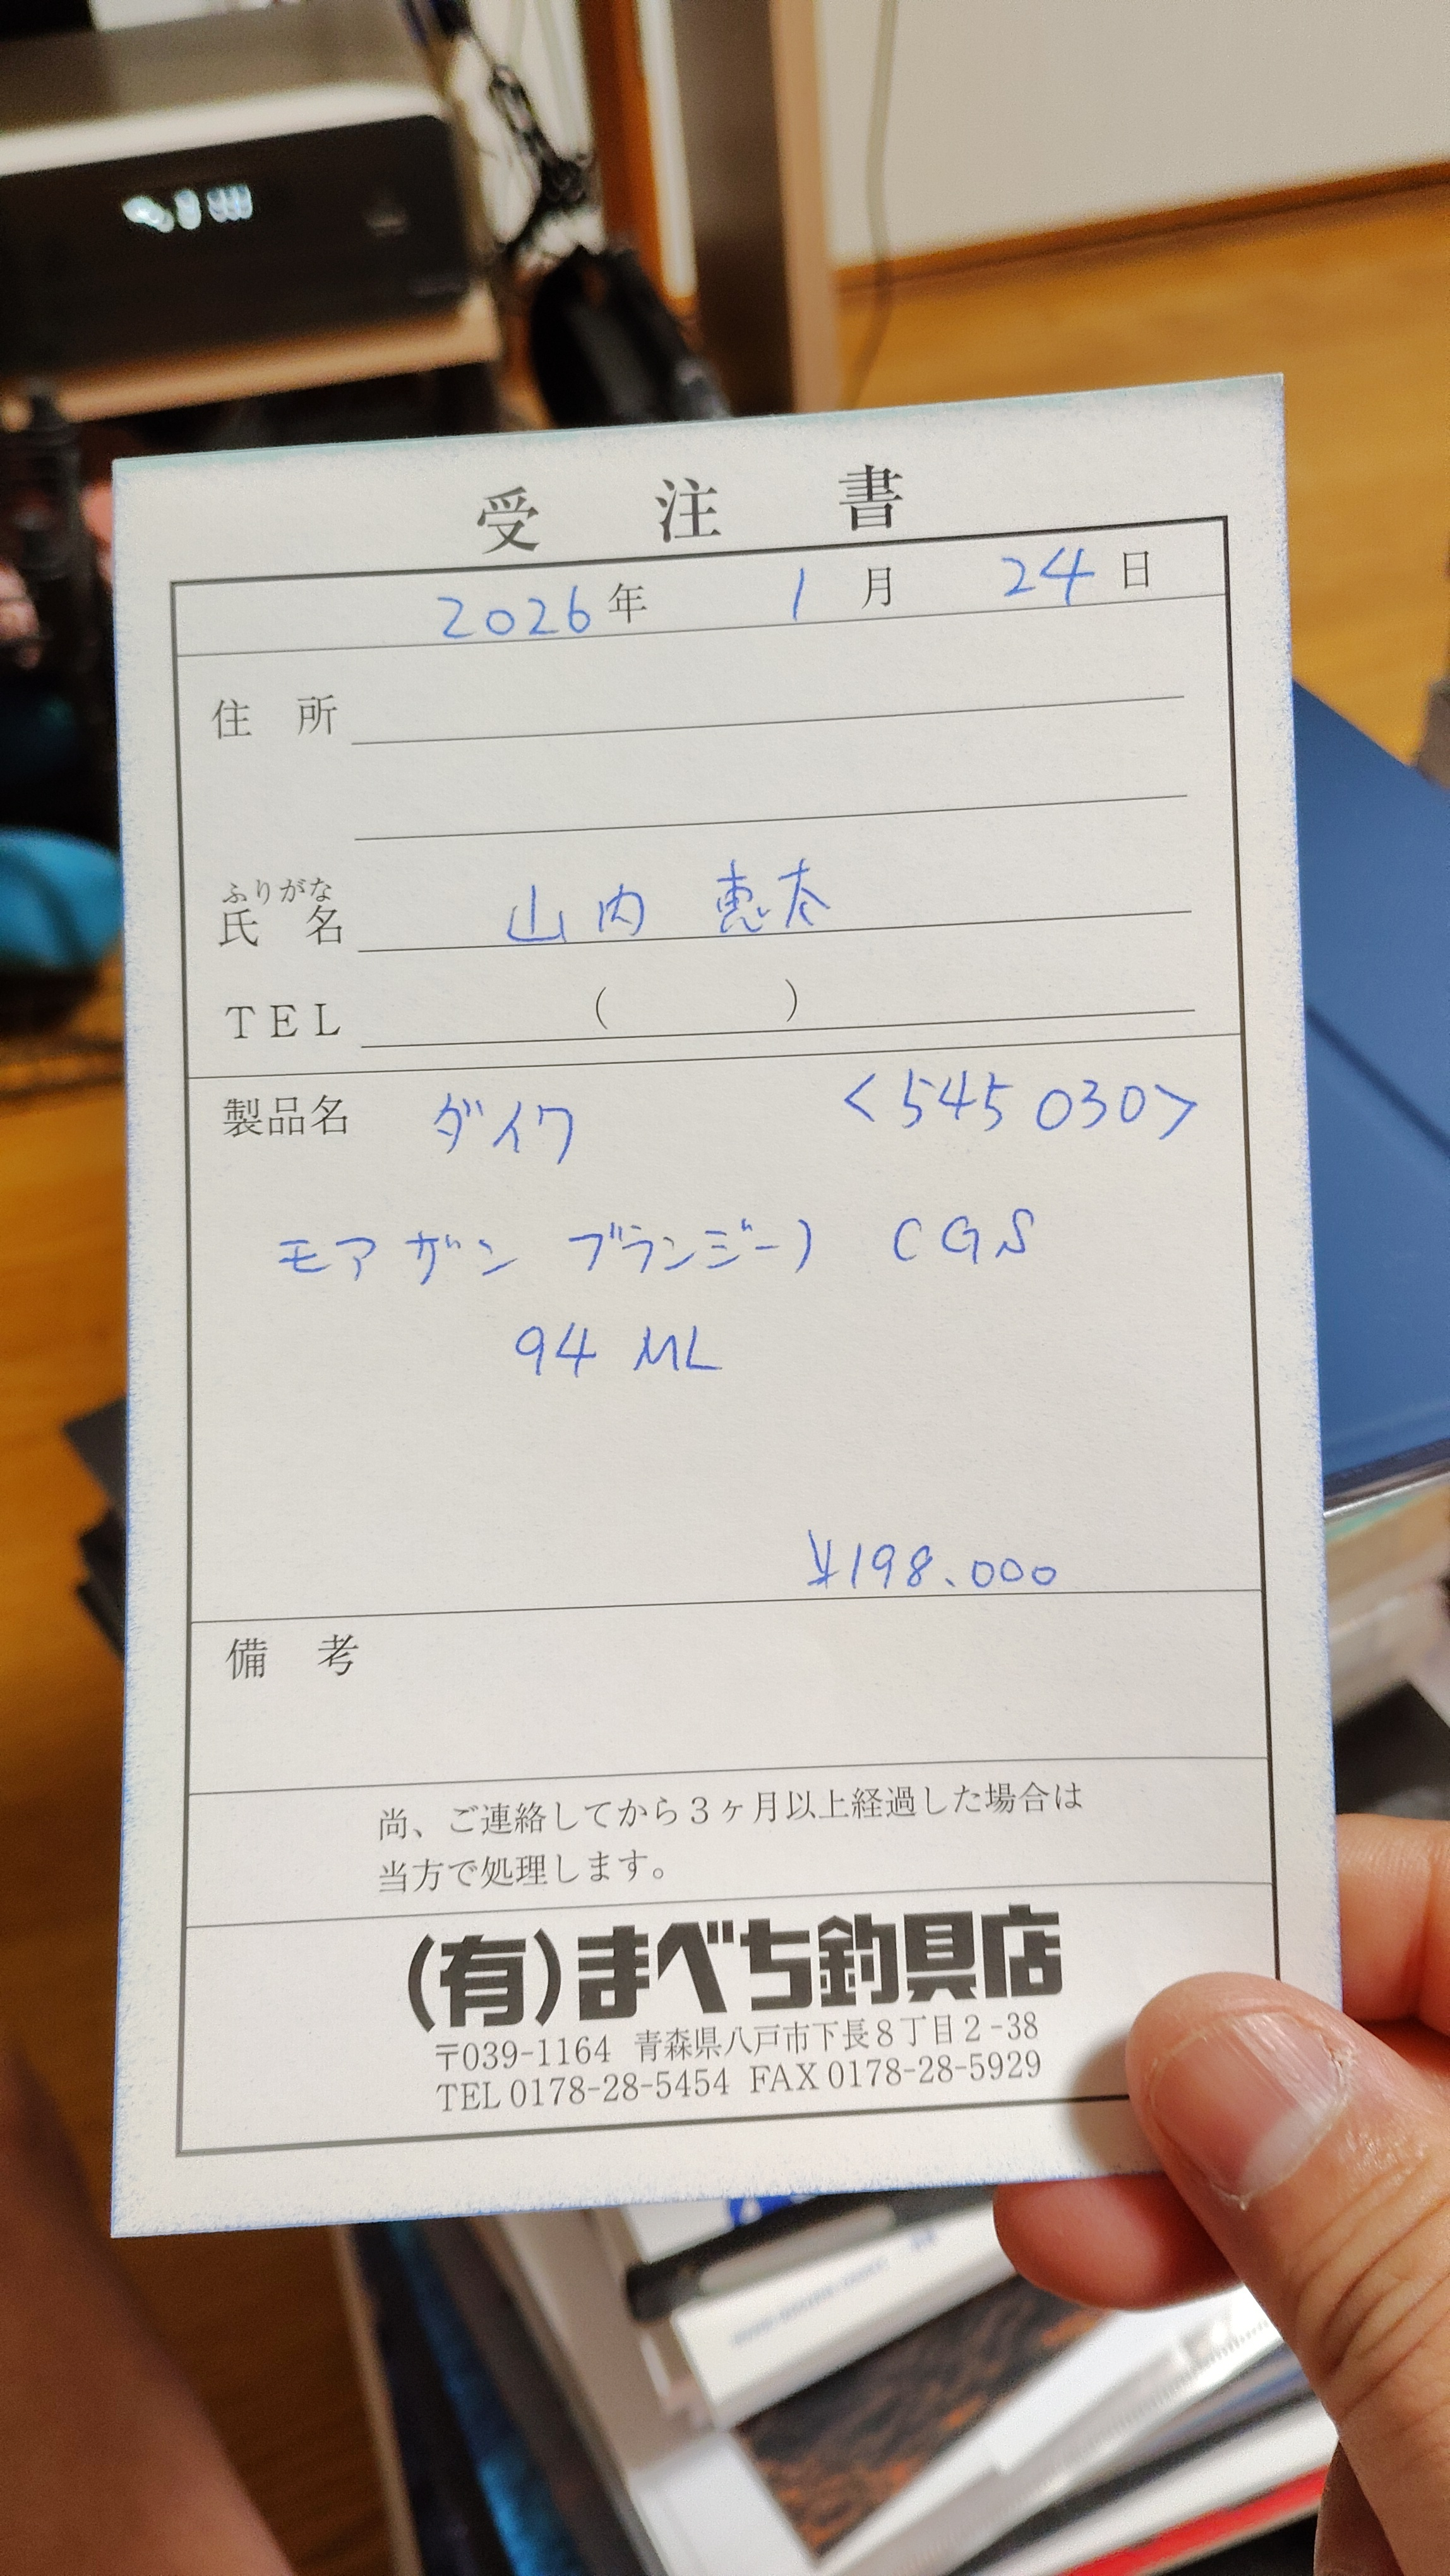 受注書
2026年 1月 24日
住所
ふりがな
氏名 山内 恵太
TEL ( )
製品名 ダイワ <545 030>
モアザン ブランジーノ CGS
94 ML
¥198.000
備考
尚、ご連絡してから3ヶ月以上経過した場合は
当方で処理します。
(有)まべち釣具店
〒039-1164 青森県八戸市下長8丁目2-38
TEL 0178-28-5454 FAX 0178-28-5929